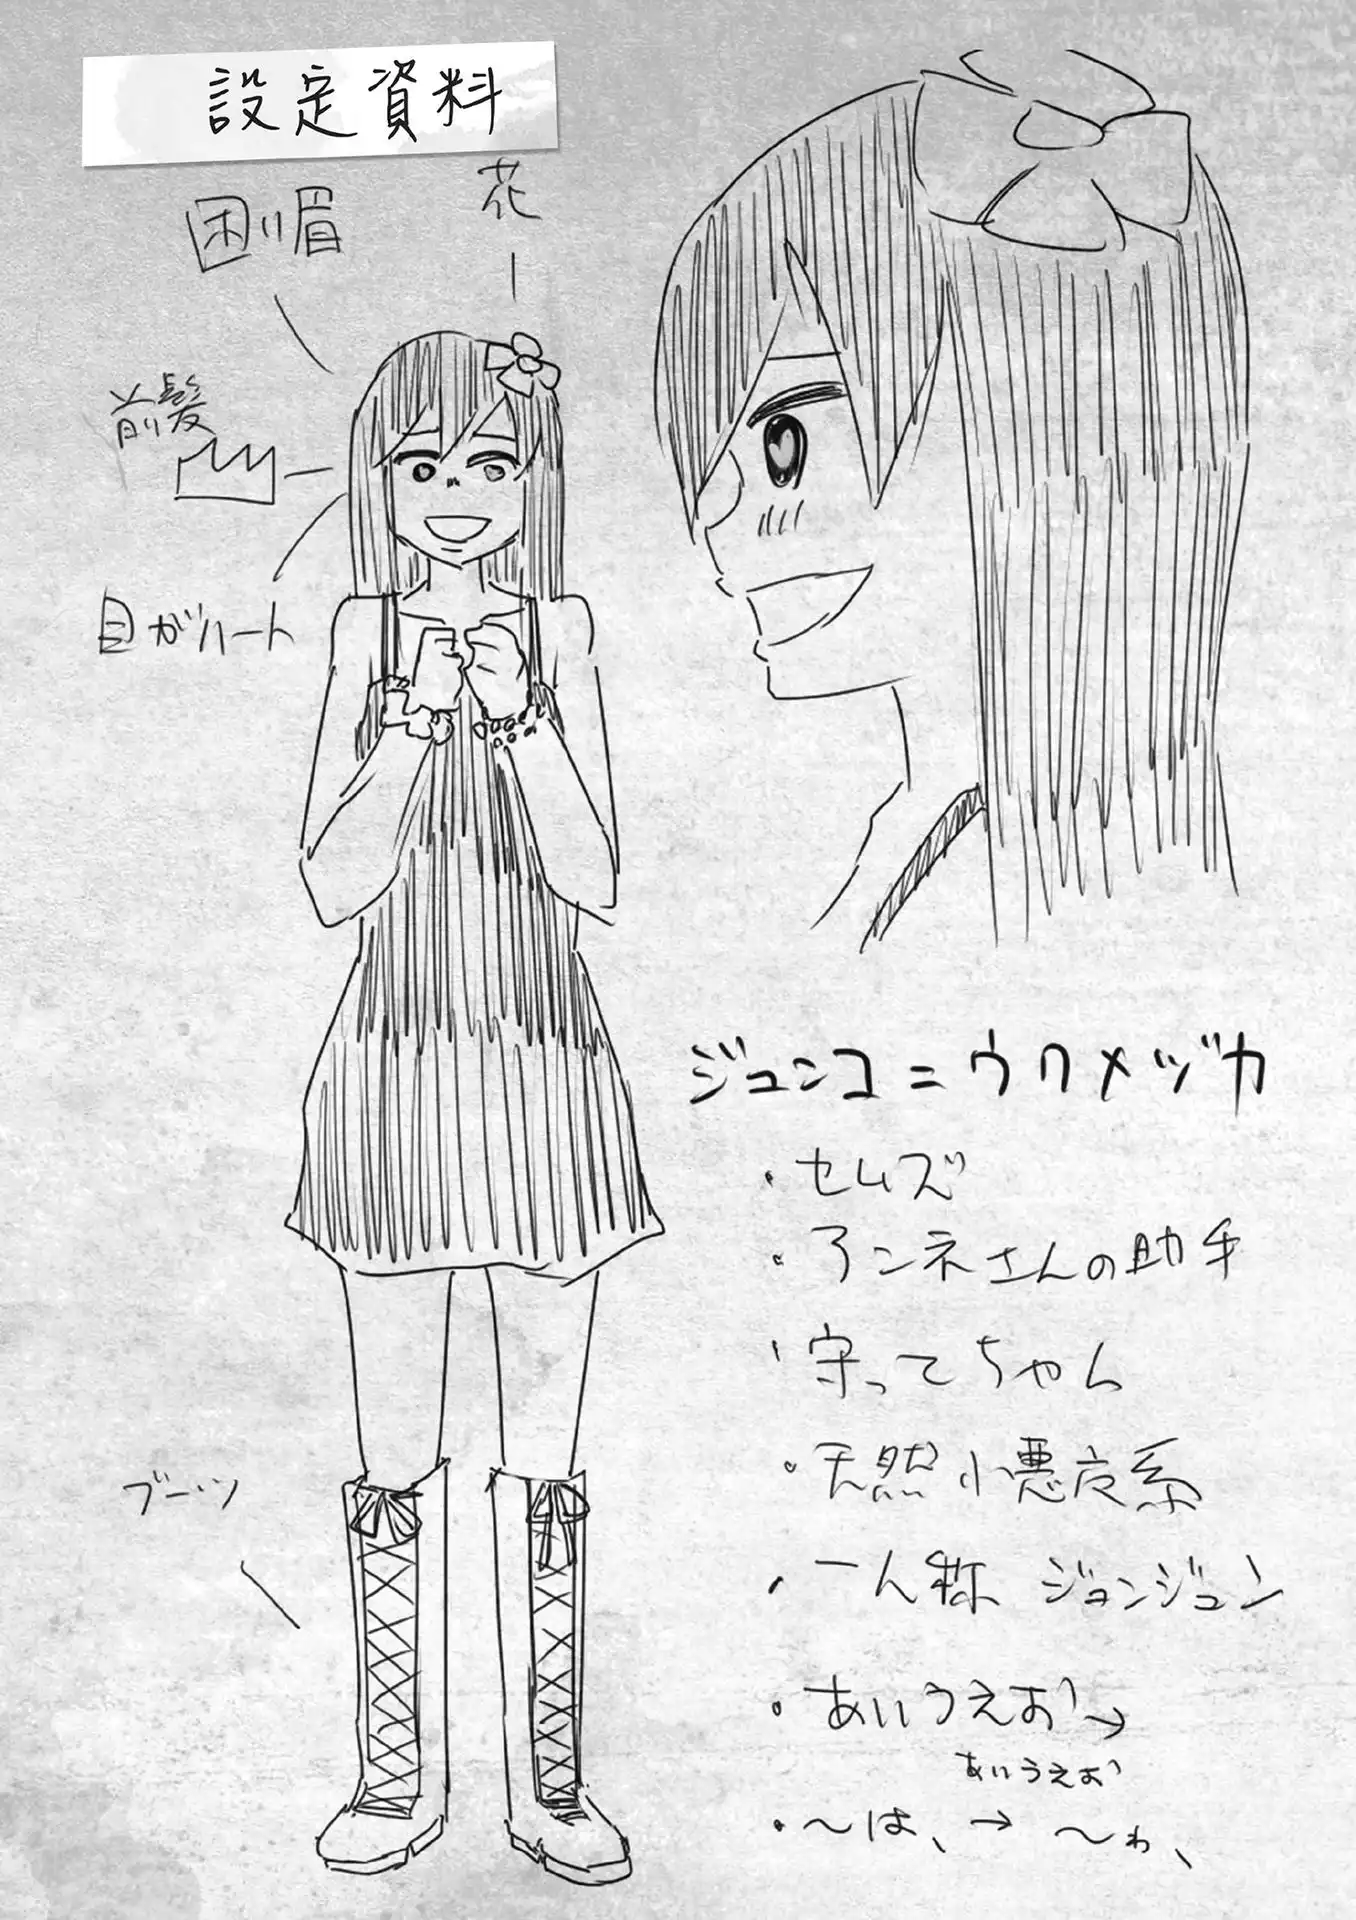 設定資料
花
困り眉
前髪
目がハート
ジュンコ=ウクメヅカ
・セムズ
・アンネさんの助手
・守ってちゃん
・天然小悪魔系
・一人称 ジュンジュン
・あいうえお→
ぁぃぅぇぉ
・〜は、→〜ゎ、
ブーツ